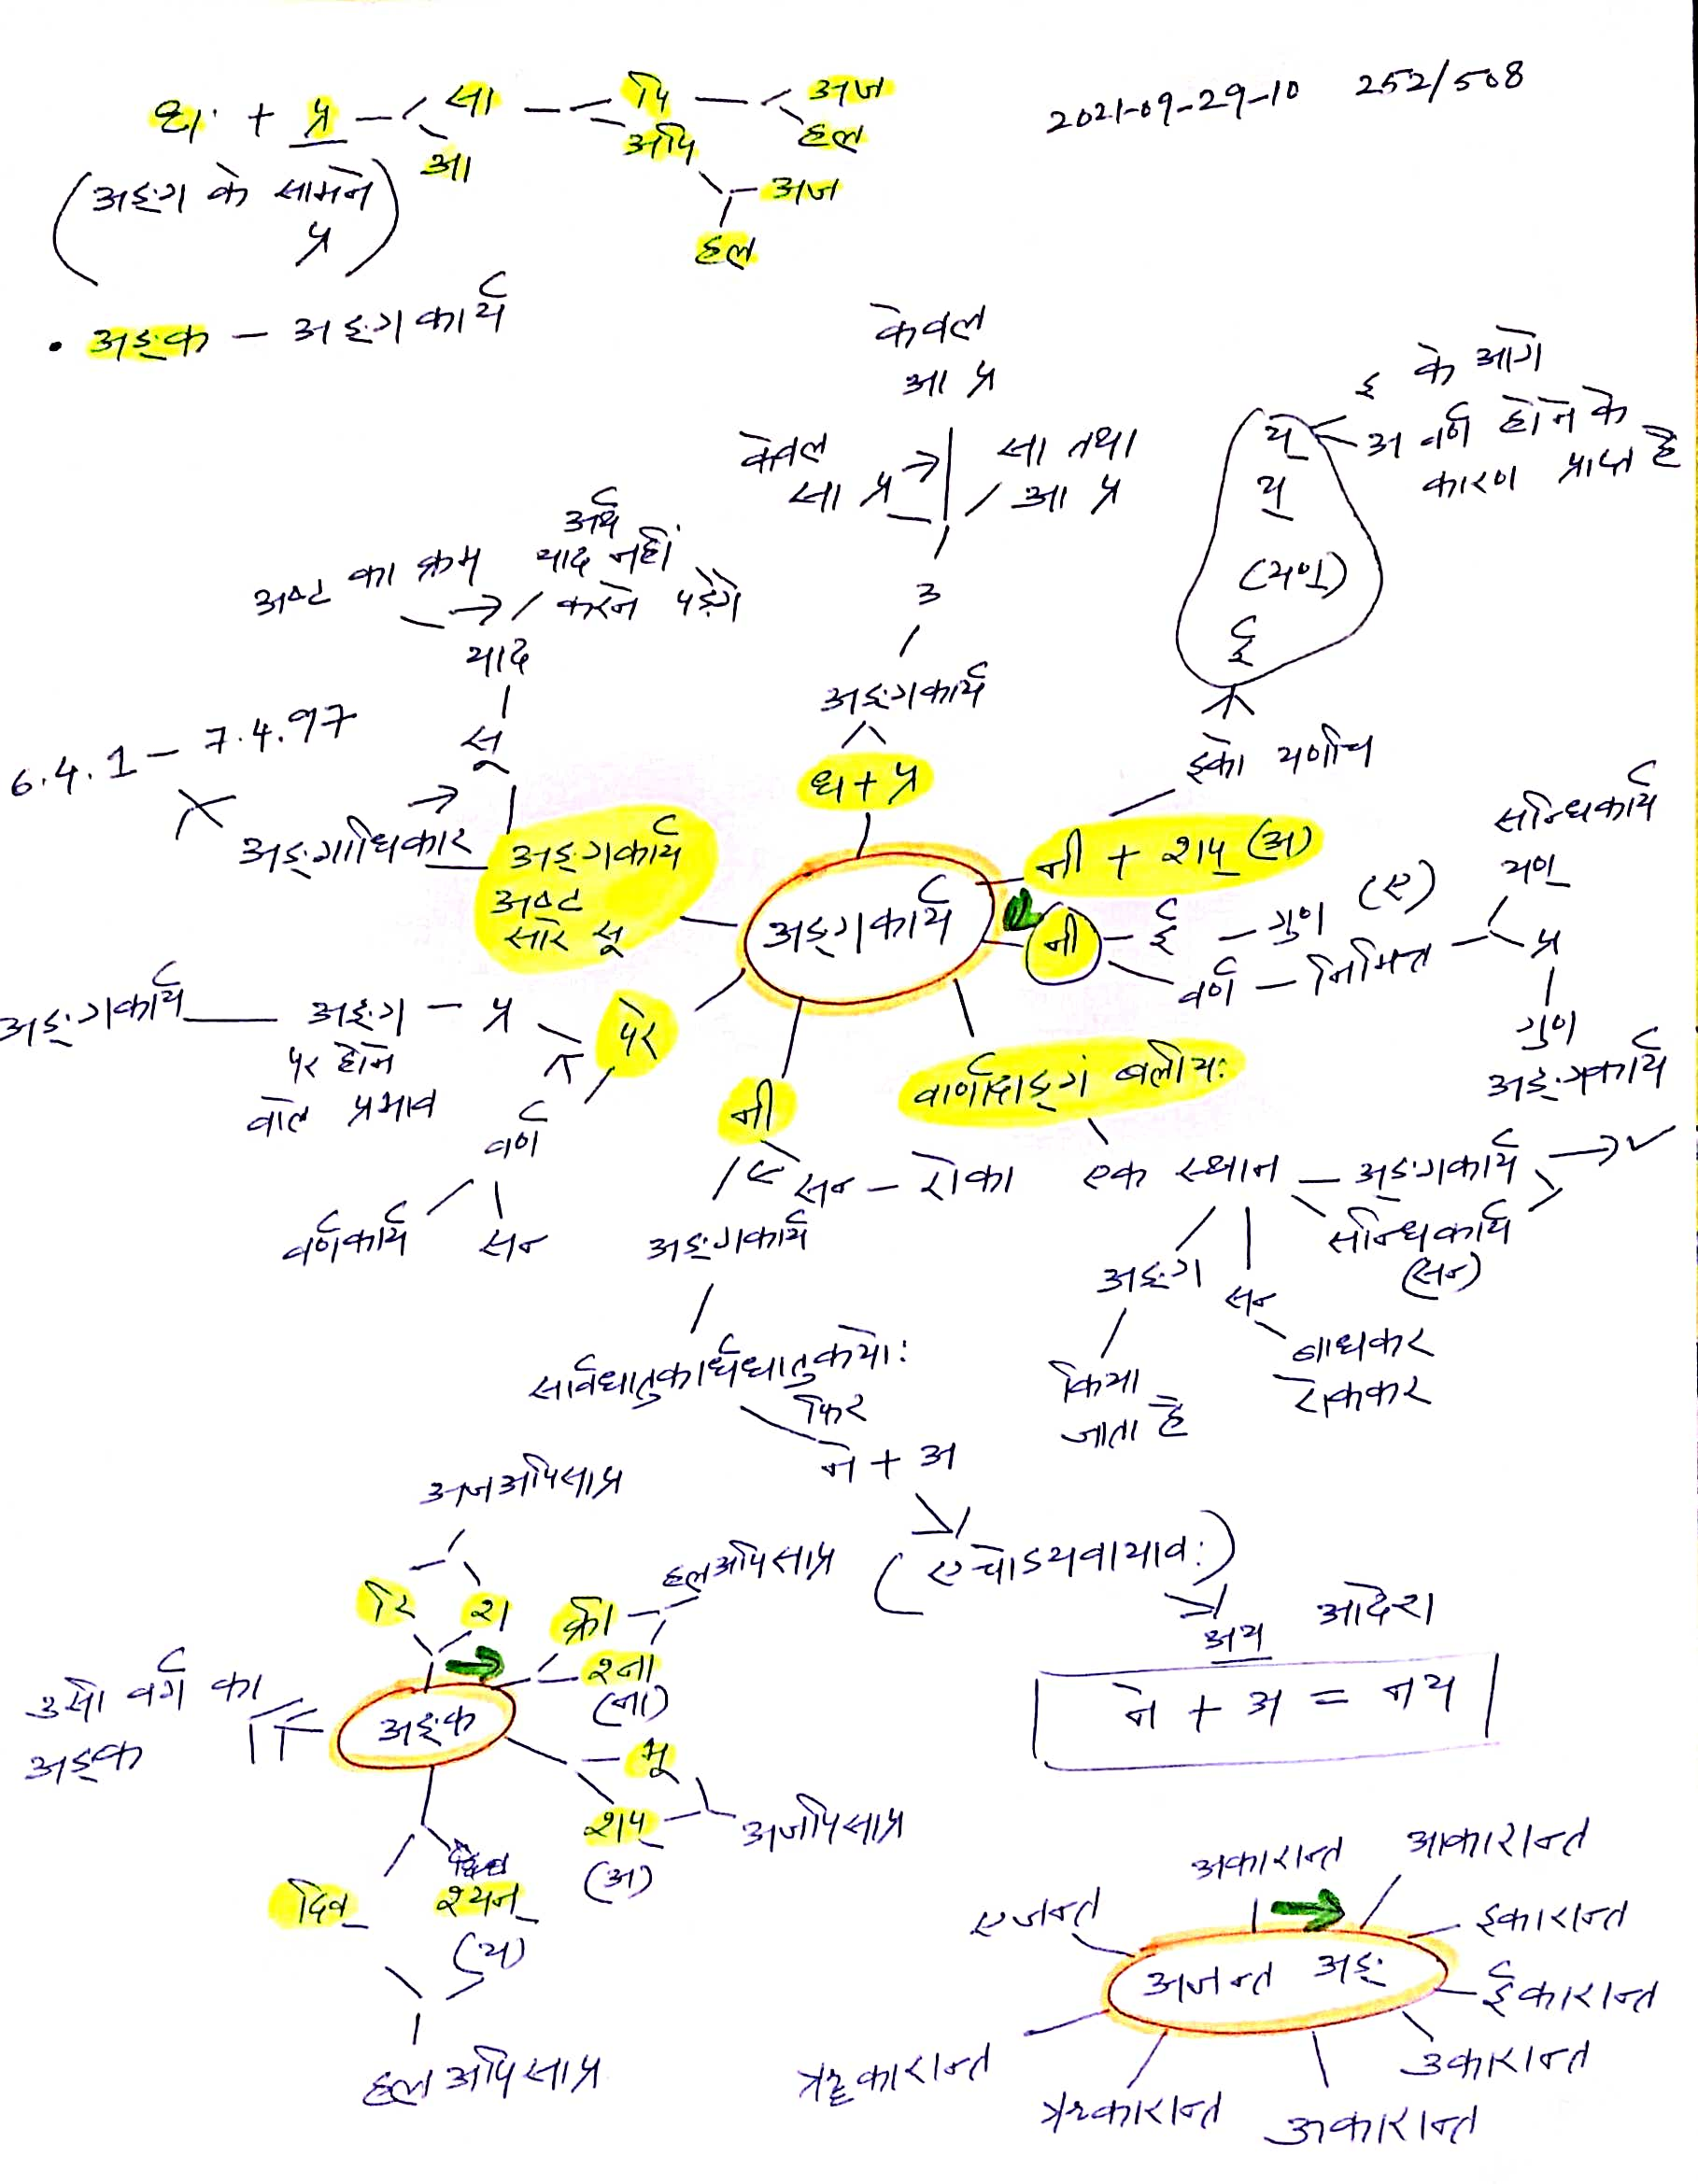 2021-09-29-10 252/508
धा. + प्र — सा — पि — अज
आ अपि हल
अज
हल
(अङ्ग के सामने
प्र)
• अङ्क — अङ्गकार्य
केवल
आ प्र
केवल
सा प्र
सा तथा
आ प्र
3
अङ्गकार्य
धा + प्र
इ के आगे
अ वर्ण होने के
कारण प्राप्त है
य्
य्
(यण्)
ई
इको यणचि
नी + शप् (अ)
अष्ट का क्रम
याद
अर्थ
याद नहीं
करने पड़ेंगे
सू
6.4.1 — 7.4.97
अङ्गाधिकार
अङ्गकार्य
अष्ट
सारे सू
अङ्गकार्य
नी — ई — गुण (ए)
वर्ण — निमित्त — प्र
सन्धिकार्य
यण्
गुण
अङ्गकार्य
अङ्गकार्य — अङ्ग — प्र
पर होने
वाले प्रभाव
परे
वर्ण
वर्णकार्य
सन्
नी
सन् — रोका
अङ्गकार्य
वार्णादाङ्गं बलीयः
एक स्थान — अङ्गकार्य → ✓
सन्धिकार्य
(सन्)
अङ्ग
किया
जाता है
सन्
बाधकर
रोककर
सार्वधातुकार्धधातुकयोः
फिर
ने + अ
(एचोऽयवायावः)
अय् आदेश
ने + अ = नय
अज अपि सा प्र
रि श
हल अपि सा प्र
क्री
श्ना
(ना)
अङ्क
उसी वर्ग का
अङ्क
भू
शप्
(अ)
अजपि सा प्र
दिव्
श्यन्
(य)
हल अपि सा प्र
अजन्त अङ्
अकारान्त
आकारान्त
इकारान्त
ईकारान्त
उकारान्त
ऊकारान्त
ऋकारान्त
ॠकारान्त
एजन्त